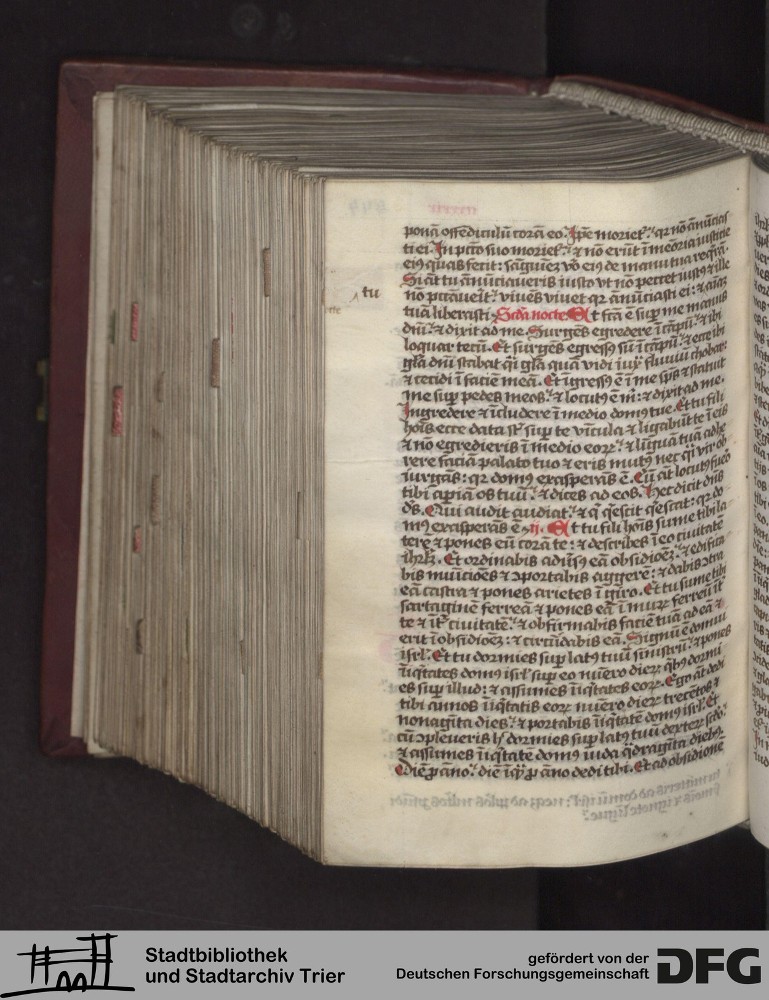 ponā offēdiculū corā eo. Ip̄e moriet᷑. qr nō ānūcias
ti ei. In pctō suo moriet᷑. ⁊ nō erūt ī meōria iusticie
eiꝰ quas fecit: sāguīeꝫ vō eiꝰ de manu tua reqrā.
Si āt tu ānūciaueris iusto vt nō peccet iustꝰ ⁊ ille
nō pctāuerit. viuēs viuet qꝛ ānūciasti ei: ⁊ aīaꝫ
tu
tuā liberasti. Scda nocte. Et fcā ē suꝑ me manus
dnī. ⁊ dixit ad me. Surgēs egredere ī cāpū. ⁊ ibi
loquar tecū. Et surgēs egressꝰ sū ī cāpū. ⁊ ecce ibi
glā dnī stabat q̄i glā quā vidi iux̄ fluuiū chobar.
⁊ cecidi ī faciē meā. Et īgressꝰ ē ī me sp̄s ⁊ statuit
me suꝑ pedes meos. ⁊ locutꝰ ē m̄: ⁊ dixit ad me.
Ingredere ⁊ īcludere ī medio domꝰ tue. Et tu fili
hoīs ecce data st̄ suꝑ te vīcula ⁊ ligabūt te ī eis
⁊ nō egredieris ī medio eoꝝ. ⁊ līguā tuā adhe
rere faciā palato tuo ⁊ eris mutꝰ nec q̄i vir ob
iurgās: qꝛ domꝰ exasperās ē. Cū āt locutꝰ fuero
tibi aꝑiā os tuū. ⁊ dices ad eos. Hec dicit dn̄s
ds̄. Qui audit audiat. ⁊ q̄ qescit qescat: qꝛ do
mꝰ exasperās ē. ij. Et tu fili hoīs sume tibi la
terē ⁊ pones eū corā te: ⁊ describes ī eo ciuitatē
ihrlꝫ. Et ordinabis adūsꝰ eā obsidioēꝫ. ⁊ edifica
bis muīcioēs ⁊ ꝯportabis aggerē: ⁊ dabis ꝯtra
eā castra ⁊ pones arietes ī giro. Et tu sume tibi
sartaginē ferreā ⁊ pones eā ī muꝝ ferreū īt̄
te ⁊ īt̄ ciuitatē. ⁊ obfirmabis faciē tuā ad eā ⁊
erit ī obsidioēꝫ: ⁊ circūdabis eā. Signū ē domui
isrl̄. Et tu dormies suꝑ latꝰ tuū sinistrū. ⁊ pones
īiq̄tates domꝰ isrl̄ suꝑ eo nūero dieꝝ qbꝰ dormi
es suꝑ illud: ⁊ assumes īiq̄tates eoꝝ. Ego āt dedi
tibi annos īiq̄tatis eoꝝ nūero dieꝝ trecētos ⁊
nonagīta dies. ⁊ portabis īiq̄tatē domꝰ isrl̄. Et
cū ꝯpleueris h̄ dormies suꝑ latꝰ tuū dexteꝝ scdo.
⁊ assumes īiq̄tatē domꝰ iuda q̄dragīta diebꝰ.
Diē ꝓ āno. diē īq̄ꝫ ꝓ āno dedi tibi. Et ad obsidionē
Stadtbibliothek
und Stadtarchiv Trier
gefördert von der
Deutschen Forschungsgemeinschaft
DFG